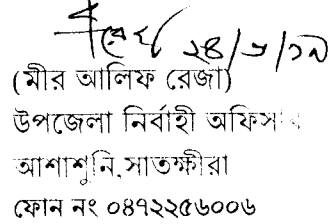 ২৪/৬/১৯
(মীর আলিফ রেজা)
উপজেলা নির্বাহী অফিসার
আশাশুনি,সাতক্ষীরা
ফোন নং ০৪৭২২৫৬০০৬